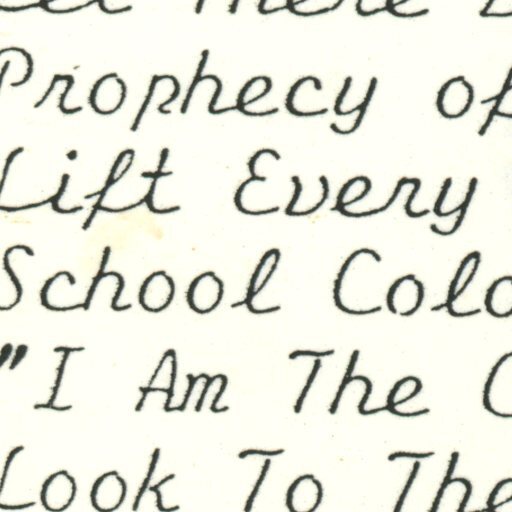 Let There
Prophecy of
Lift Every
School Colo
"I Am The C
Look To The